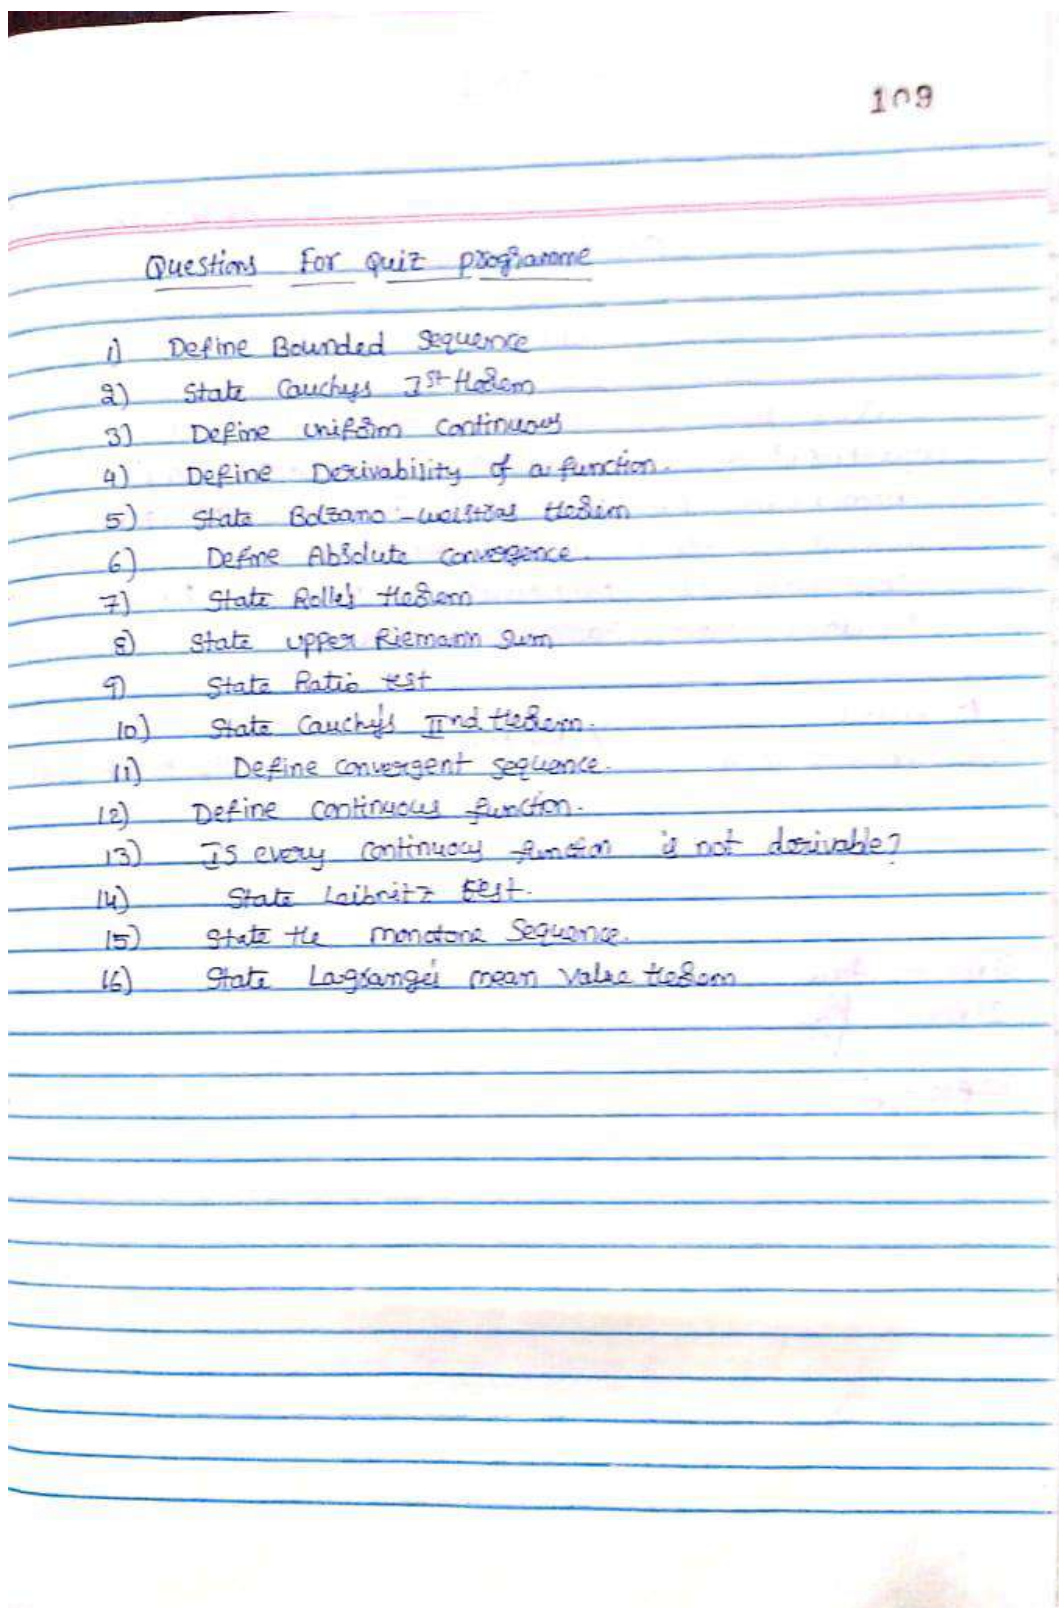 109
Questions For Quiz programme
1) Define Bounded Sequence
2) State Cauchys Ist theorem
3) Define uniform continuous
4) Define Derivability of a function.
5) State Bolzano - weistras theorem
6) Define Absolute convergence.
7) State Rolle's theorem
8) State upper Riemann Sum
9) State Ratio test
10) State Cauchy's IInd theorem.
11) Define convergent sequence.
12) Define continuous function.
13) Is every continuous function is not derivable?
14) State Leibnitz test.
15) State the monotone Sequence.
16) State Lagrange's mean value theorem